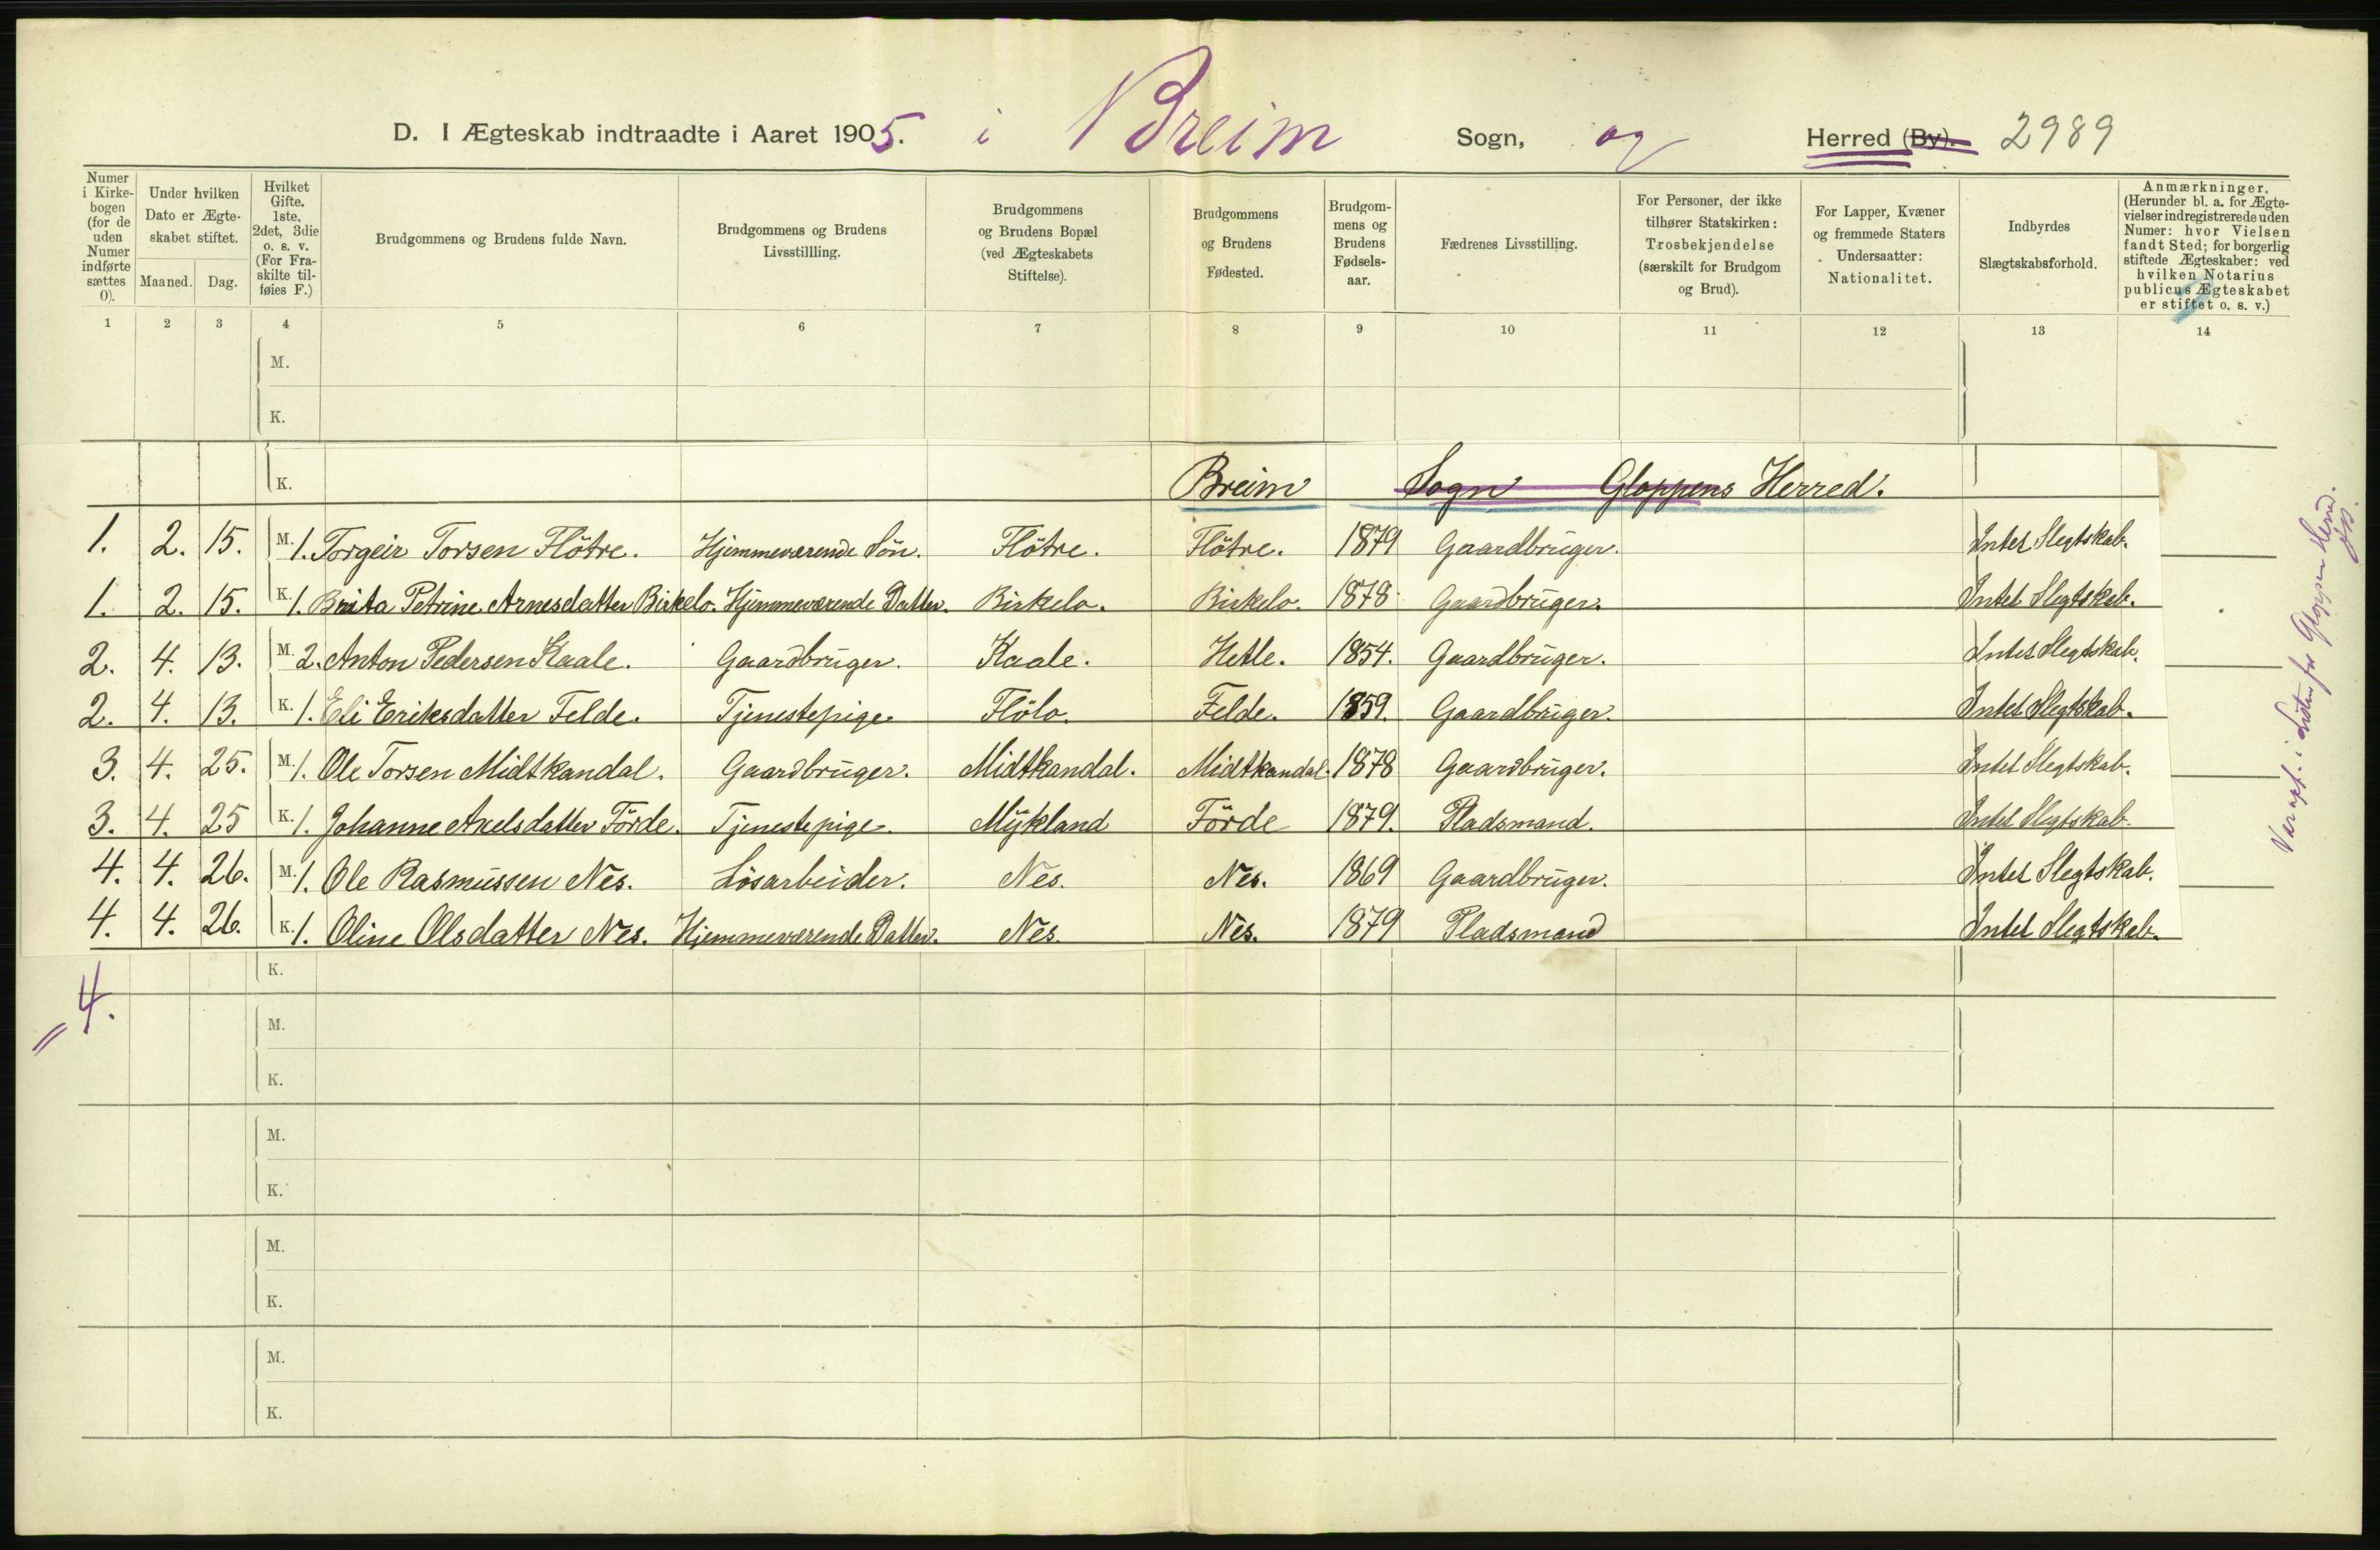 D. I Ægteskab indtraadte i Aaret 1905. i Breim Sogn, og Herred (By). 2989
Numer i Kirkebogen (for de uden Numer indførte sættes 0).
Under hvilken Dato er Ægteskabet stiftet.
Maaned. Dag.
Hvilket Gifte. 1ste, 2det, 3die o. s. v. (For Fraskilte tilføies F.)
Brudgommens og Brudens fulde Navn.
Brudgommens og Brudens Livsstillling.
Brudgommens og Brudens Bopæl (ved Ægteskabets Stiftelse).
Brudgommens og Brudens Fødested.
Brudgommens og Brudens Fødselsaar.
Fædrenes Livsstilling.
For Personer, der ikke tilhører Statskirken: Trosbekjendelse (særskilt for Brudgom og Brud).
For Lapper, Kvæner og fremmede Staters Undersaatter: Nationalitet.
Indbyrdes Slægtskabsforhold.
Anmærkninger. (Herunder bl. a. for Ægtevielser indregistrerede uden Numer: hvor Vielsen fandt Sted; for borgerlig stiftede Ægteskaber: ved hvilken Notarius publicus Ægteskabet er stiftet o. s. v.)
1 2 3 4 5 6 7 8 9 10 11 12 13 14
M.
K.
K. Breim Sogn Gloppens Herred.
1. 2. 15. M. 1. Torgeir Torsen Flötre. Hjemmeværende Sön. Flötre. Flötre. 1879 Gaardbruger. Intet Slegtskab.
1. 2. 15. K. 1. Brita Petrine Arnesdatter Birkelo. Hjemmeværende Datter. Birkelo. Birkelo. 1878 Gaardbruger. Intet Slegtskab.
2. 4. 13. M. 2. Anton Pedersen Kaale. Gaardbruger. Kaale. Hetle. 1854. Gaardbruger. Intet Slegtskab.
2. 4. 13. K. 1. Eli Eriksdatter Felde. Tjenestepige Flölo. Felde. 1859. Gaardbruger. Intet Slegtskab.
3. 4. 25. M. 1. Ole Torsen Midtkandal. Gaardbruger. Midtkandal. Midtkandal. 1878 Gaardbruger. Intet Slegtskab.
3. 4. 25 K. 1. Johanne Axelsdatter Förde. Tjenestepige. Mÿkland Förde 1879. Pladsmand. Intet Slegtskab.
4. 4. 26. M. 1. Ole Rasmussen Nes. Lösarbeider. Nes. Nes. 1869 Gaardbruger. Intet Slegtskab.
4. 4. 26. K. 1. Oline Olsdatter Nes. Hjemmeværende Datter. Nes. Nes. 1879 Pladsmand Intet Slegtskab.
K.
= 4.
M.
K.
M.
K.
M.
K.
M.
K.
i Listen for Gloppen Herred.